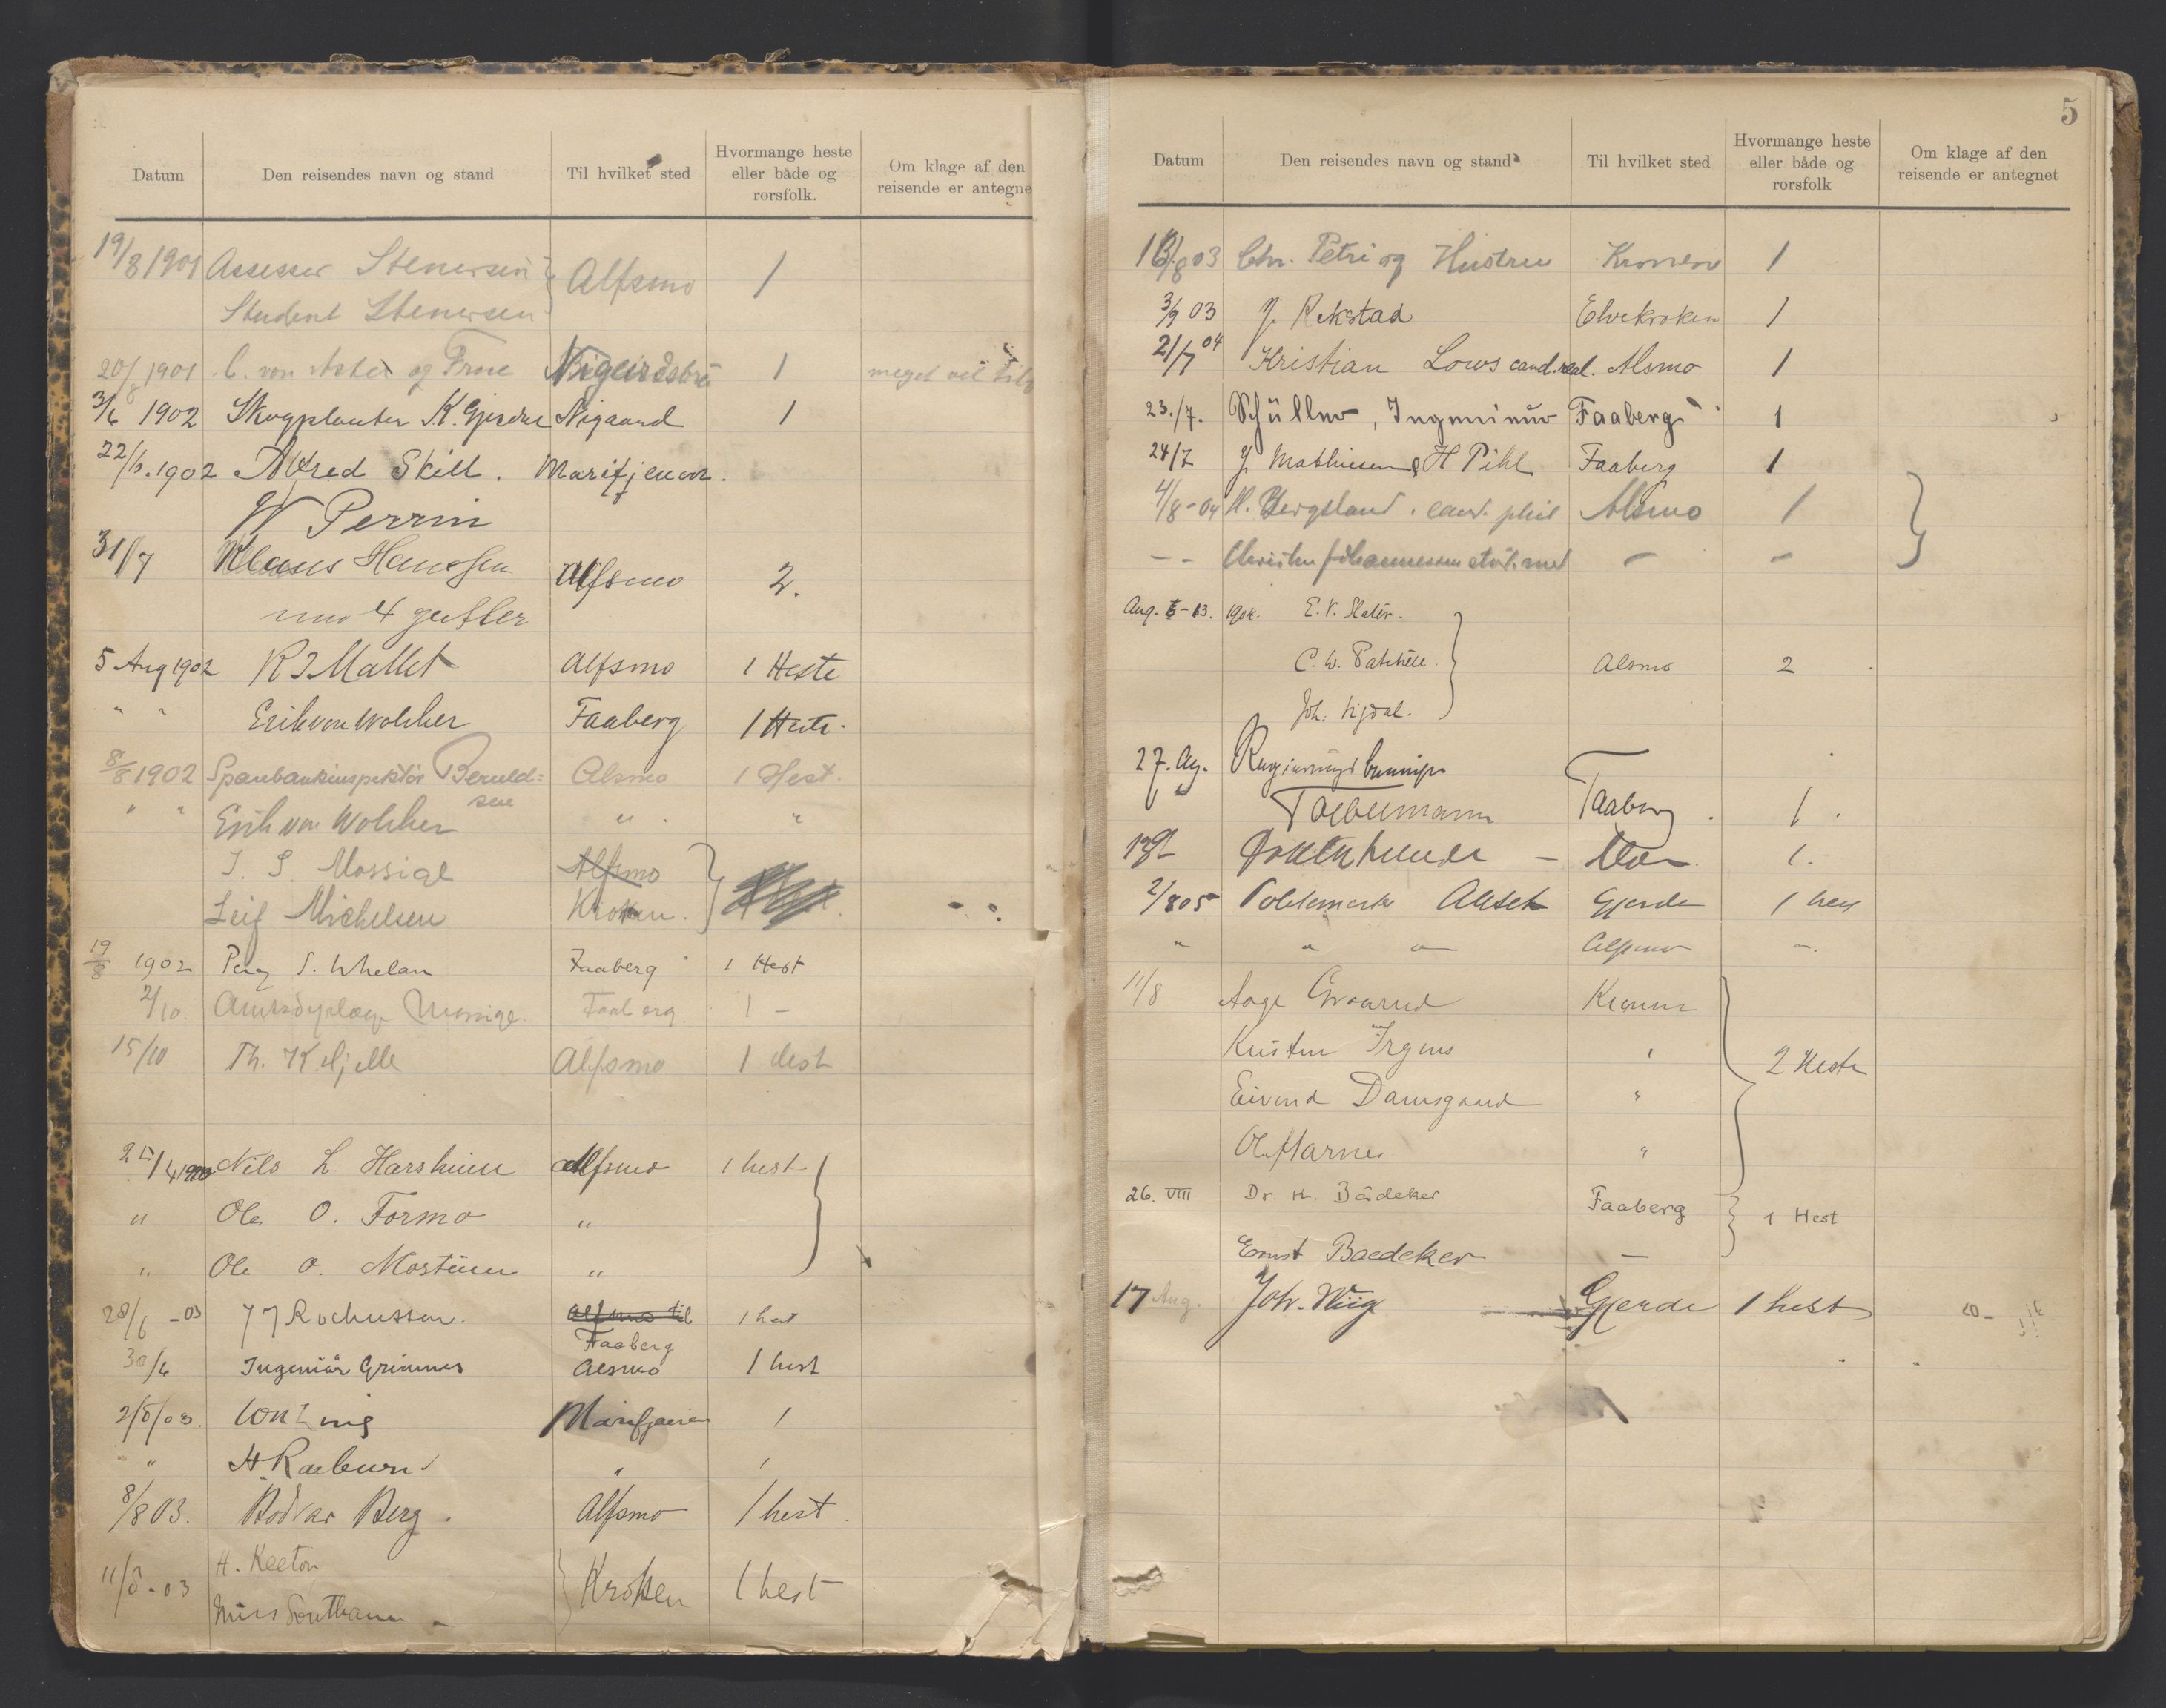 Datum Den reisendes navn og stand Til hvilket sted Hvormange heste eller både og rorsfolk. Om klage af den reisende er antegne
19/8 1901 Assessor Stenersen Alfsmo 1
Student Stenersen
20/8 1901 C. von og Frue 1 meget vel
3/6 1902 Skogplanter K. Nigaard 1
22/6. 1902 Alfred Skill. Marifjæren.
W Perrin
31/7 Klaus Hanssen Alfsmo 2.
4 gutter
5 Aug 1902 R I Mallet Alfsmo 1 Heste
" " Erik von Wolcker Faaberg 1 Heste.
8/8 1902 Sparebankinspektør Beruld= Alsmo 1 Hest.
sen
" " Erik von Wolcker " "
I. S. Mossige Alfsmo
Leif Michelsen Kroken.
19/8 1902 Percy S. Whelan Faaberg 1 Hest
2/10 Faaberg 1 –
15/10 Th. Kjelle Alfsmo 1 Hest
25/4 1903 Nils L. Harsheim Alfsmo 1 hest
" Ole O. Formo "
" Ole O. Mosteien "
28/6 -03 J J Rochussen. Alfsmo til 1 hest
Faaberg
30/6 Ingeniør Grimnes Alsmo 1 hest
2/8/03. Marifjæren 1
" " H. Raeburn " ,
8/8 03. Bodvar Berg. Alfsmo 1 hest.
11/8-03 H. Keeton Kroken 1 hest
Miss
5
Datum Den reisendes navn og stand Til hvilket sted Hvormange heste eller både og rorsfolk Om klage af den reisende er antegnet
/8 03 Chr. Petri og Hustru Kronen 1
3/9 03 J. Rekstad Elvekroken 1
21/7 04 Kristian Lows cand. real. Alsmo 1
23./7. Schüller, Ingenieur Faaberg 1
24/7 J. Mathiesen & H Pihl Faaberg 1
4/8-04 H. Bergsland. cand. phil Alsmo 1
– – Christen Johannessen stud. med – –
Aug. 5-13. 1904. E. V. Slater.
C. W. Patchell. Alsmo 2
Joh. Vigdal.
27. Aug.
Faaberg. 1.
1.
2/8 05 Gjerde 1 hest
" " " Alfsmo "
11/8 Aage Kronen
Kristen Irgens ,
Eivind Damsgaard " 2 Heste
"
26. VIII Dr. K. Bädeker Faaberg 1 Hest
Ernst Baedeker —
17 Aug. Joh. Wiig Gjerde 1 hest